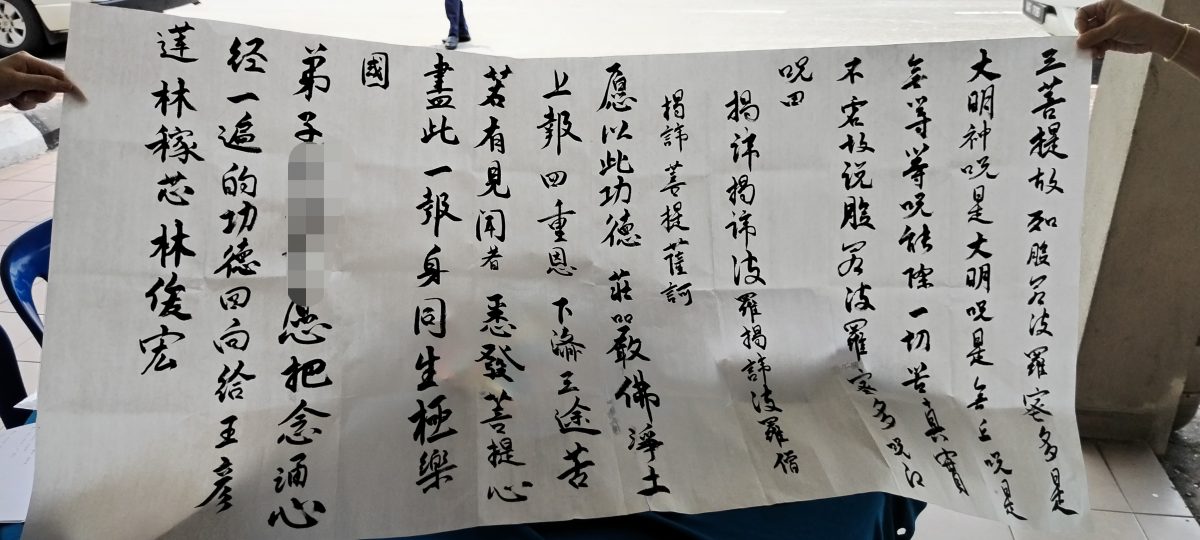 三菩提故知般若波羅蜜多是
大明神呪是大明呪是無上呪是
無等等呪能除一切苦真實
不虛故說般若波羅蜜多呪即
呪曰
揭諦揭諦波羅揭諦波羅僧
揭諦菩提薩訶
愿以此功德莊嚴佛淨土
上報四重恩下濟三途苦
若有見聞者悉發菩提心
盡此一報身同生極樂
國
弟子 您把念誦心
经一遍的功德回向给王彦
莲林稼芯林俊宏